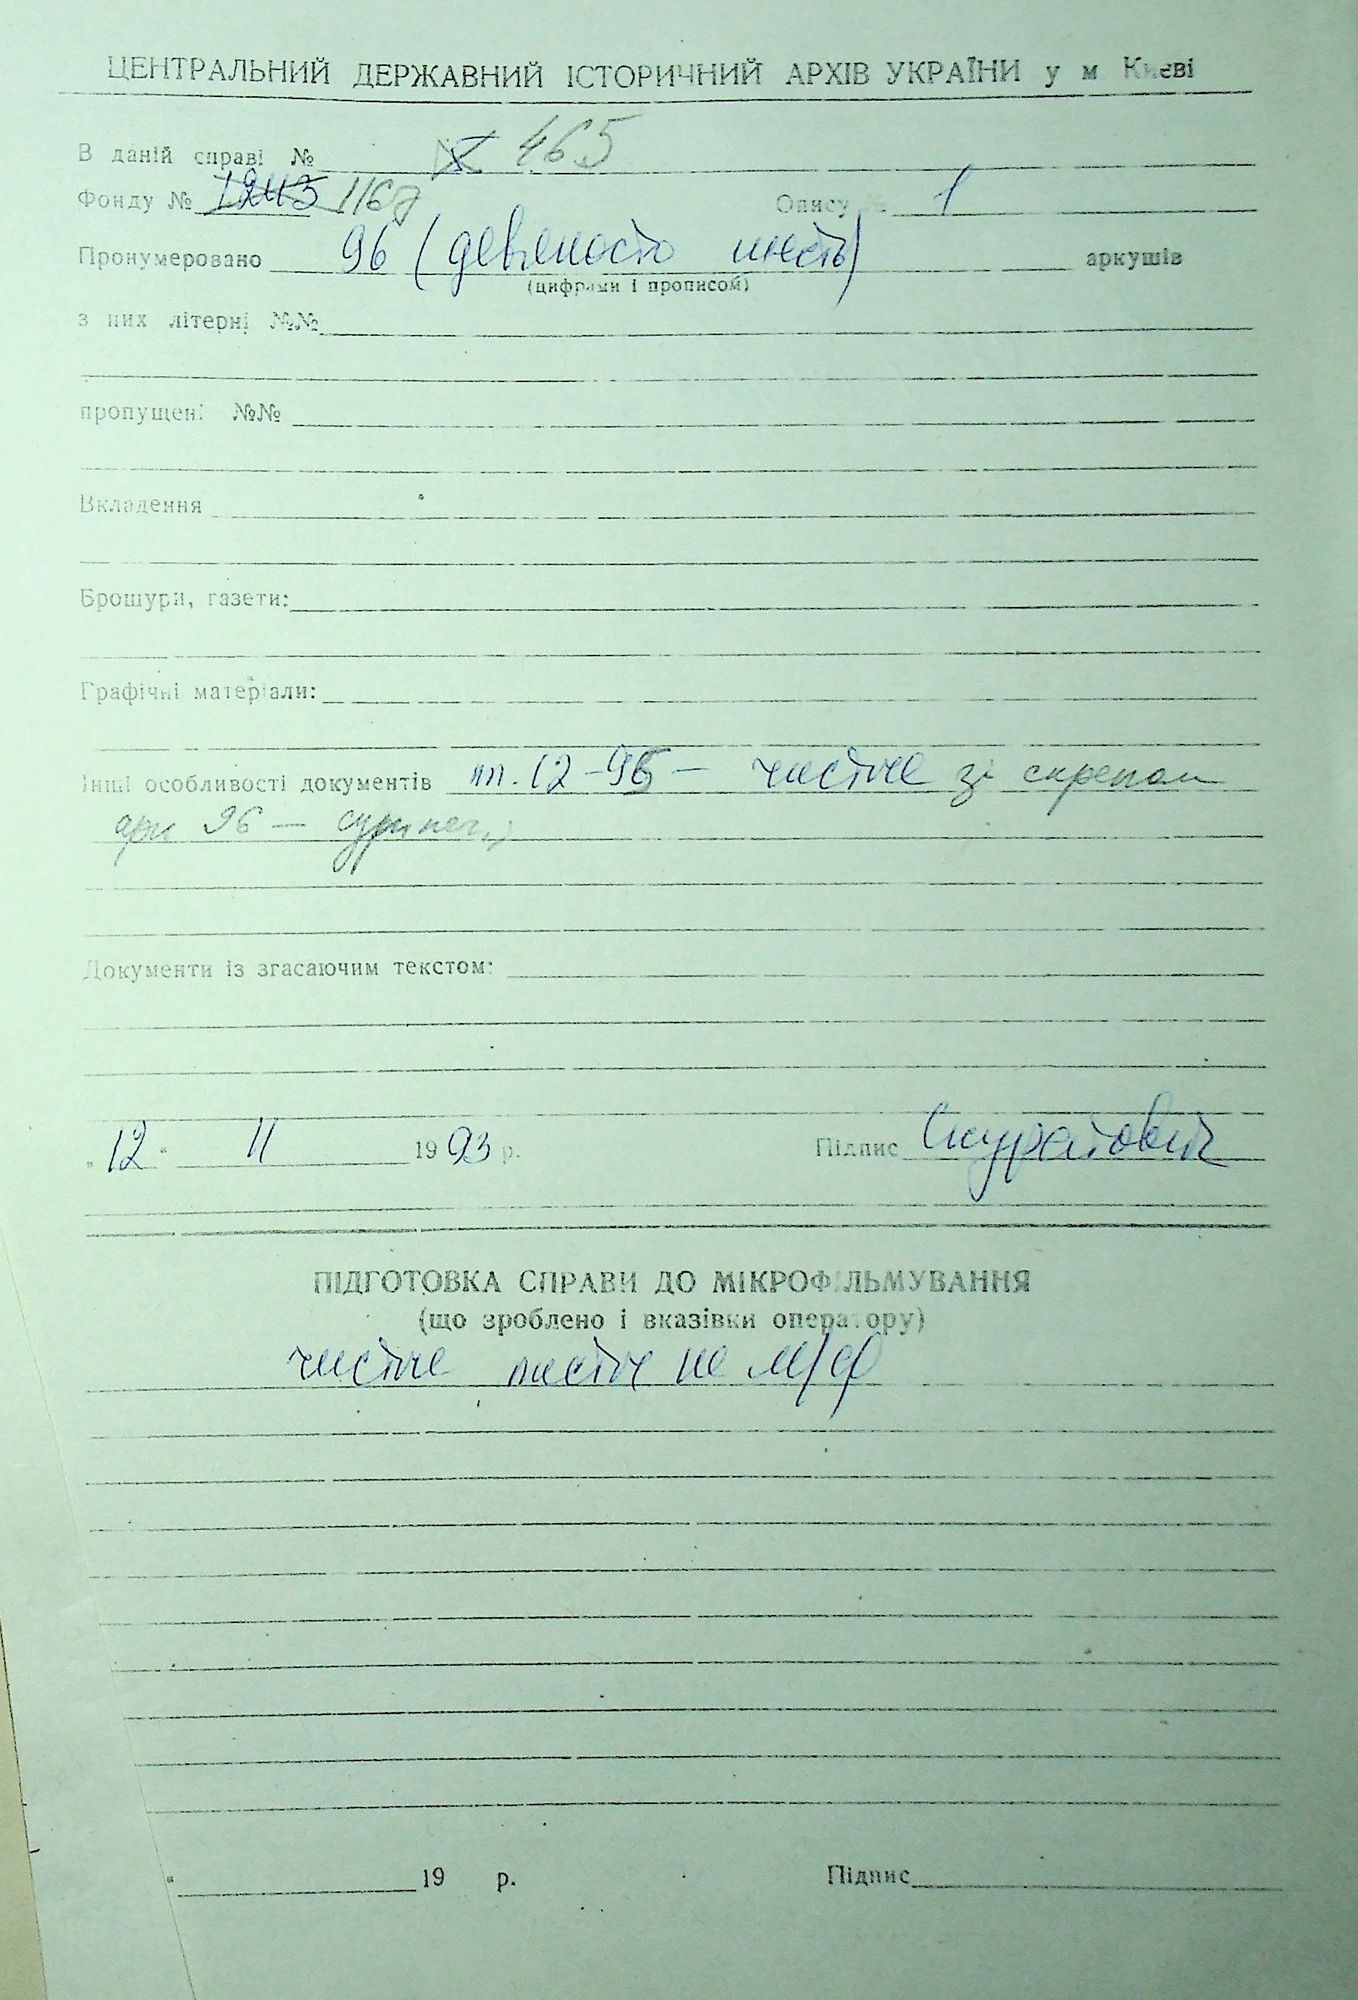 ЦЕНТРАЛЬНИЙ ДЕРЖАВНИЙ ІСТОРИЧНИЙ АРХІВ УКРАЇНИ у м Києві
В даній справі № 465
Фонду № 1243 1167 Опису № 1
Пронумеровано 96 (девяносто шість) аркушів
(цифрами і прописом)
з них літерні №№
пропущені №№
Вкладення
Брошури, газети:
Графічні матеріали:
Інші особливості документів 12-95 — чистые зі скрепою
арк 96 —
Документи із згасаючим текстом:
"12" 11 1993 р. Підпис Скуратович
ПІДГОТОВКА СПРАВИ ДО МІКРОФІЛЬМУВАННЯ
(що зроблено і вказівки оператору)
чистые листы не м/ф
" 19 р. Підпис